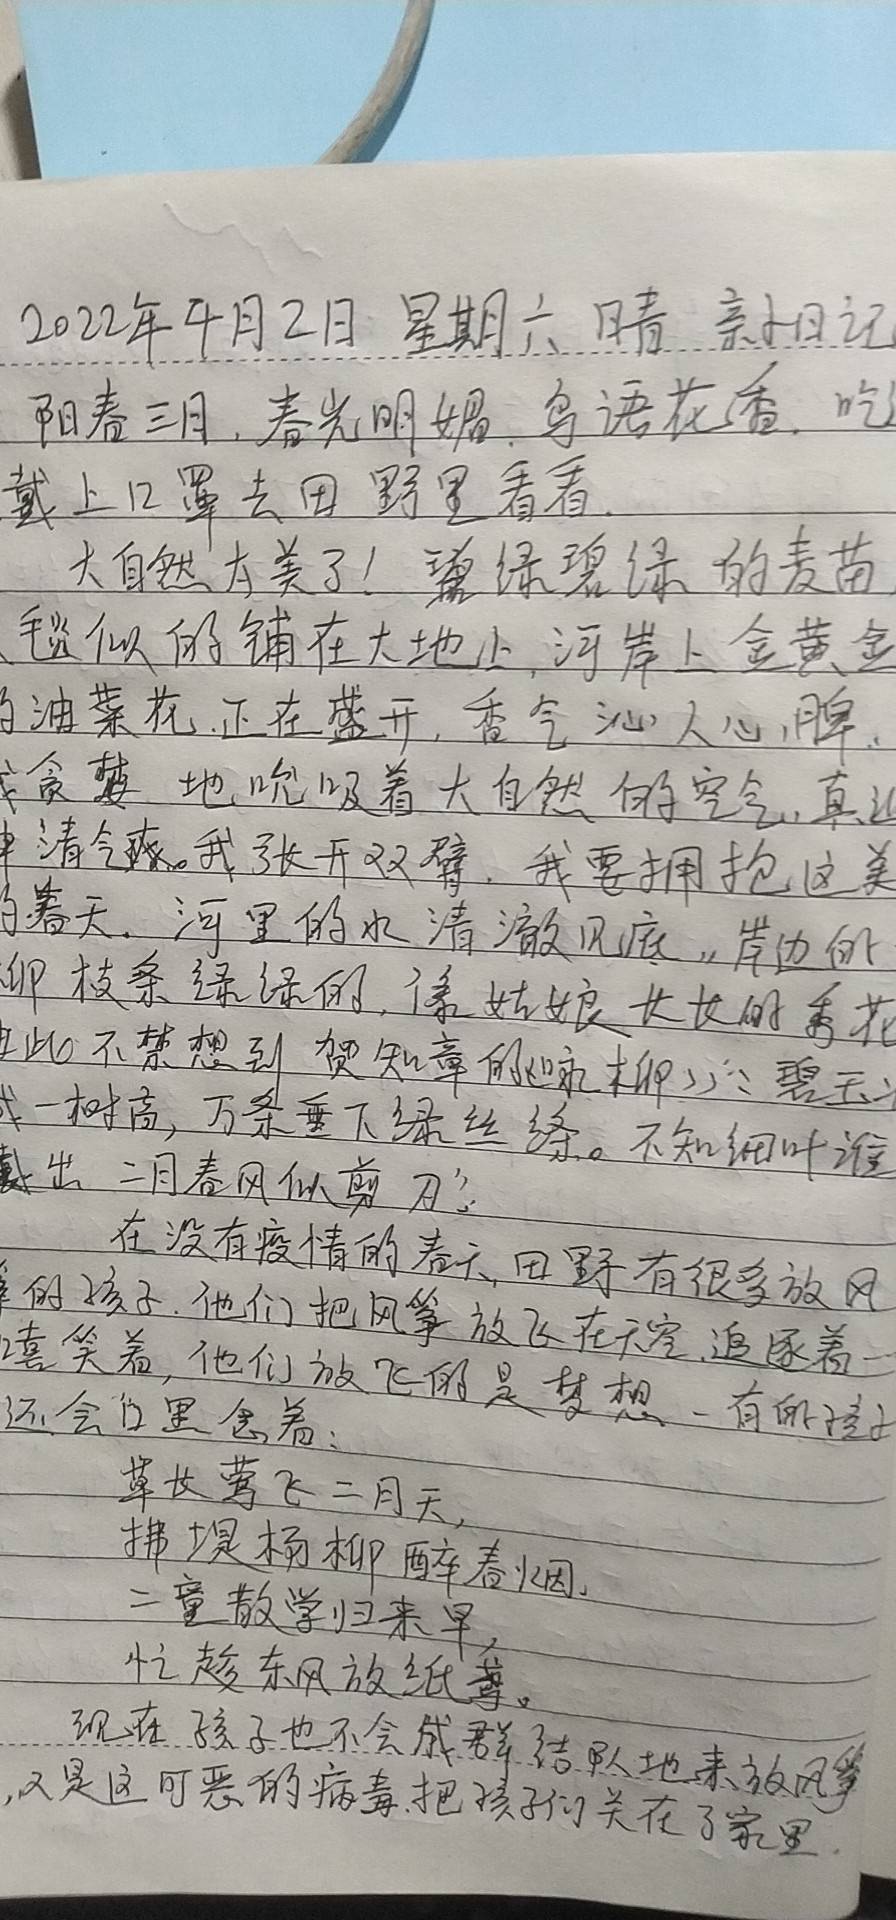 2022年4月2日 星期六 晴 亲子日记
阳春三月,春光明媚,鸟语花香,吃
戴上口罩去田野里看看.
大自然太美了!碧绿碧绿的麦苗,
毯似的铺在大地上,河岸上金黄金
的油菜花,正在盛开,香气沁人心脾.
我贪婪地吮吸着大自然的空气,真
清爽。我张开双臂,我要拥抱这美
的春天.河里的水清澈见底,,岸边的
柳枝条绿绿的,像姑娘长长的秀花
此不禁想到贺知章的《咏柳》:碧玉
成一树高,万条垂下绿丝绦。不知细叶谁
裁出 二月春风似剪刀".
在没有疫情的春天,田野有很多放风
筝的孩子.他们把风筝放飞在天空,追逐着一
嘻笑着,他们放飞的是梦想一有的孩子
还会口里念着:
草长莺飞二月天,
拂堤杨柳醉春烟.
二童散学归来早,
忙趁东风放纸
现在孩子也不会成群结队地来放风筝
,又是这可恶的病毒.把孩子们关在了家里.